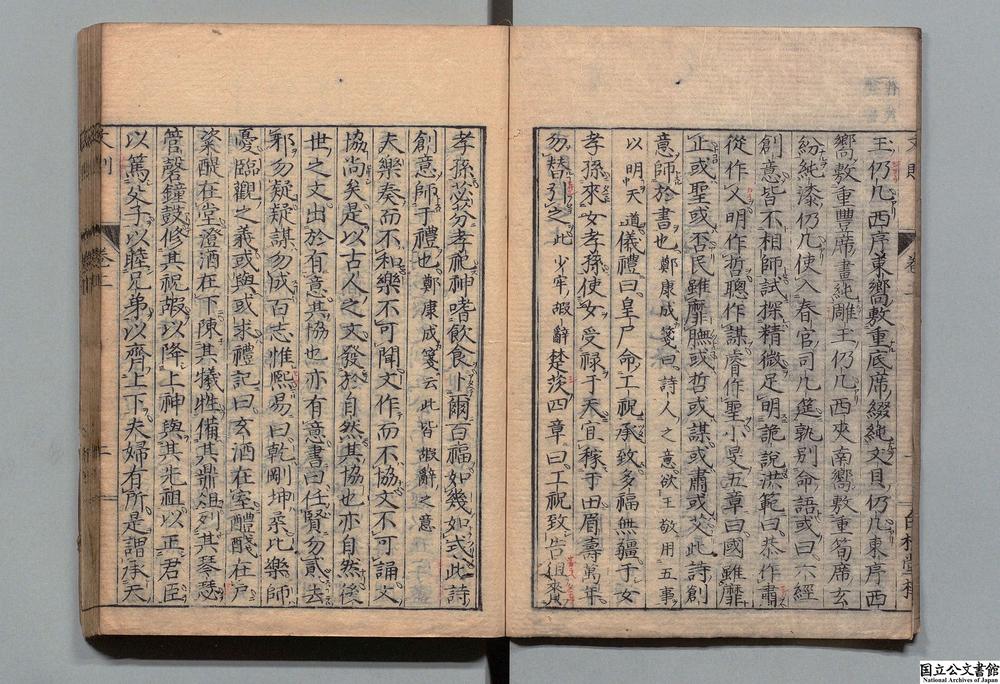 玉仍几西序東嚮敷重底席綴純文貝仍几東序西
嚮敷重豐席畫純雕玉仍几西夾南嚮敷重筍席玄
紛純漆仍几使入春官司几筵孰別命語或曰六經
創意皆不相師試探精微足明詭說洪範曰恭作肅
從作乂明作哲聰作謀睿作聖小旻五章曰國雖靡
止或聖或否民雖靡膴或哲或謀或肅或艾此詩創
意師於書也鄭康成箋曰詩人之意欲王敬用五事
以明天道儀禮曰皇尸命工祝承致多福無疆于女
孝孫來女孝孫使女受祿于天宜稼于田眉壽萬年
勿替引之此少牢嘏辭楚茨四章曰工祝致告徂賚
孝孫苾芬孝祀神嗜飲食卜爾百福如幾如式此詩
創意師于禮也鄭康成箋云此皆嘏辭之意
夫樂奏而不和樂不可聞文作而不協文不可誦文
協尚矣是以古人之文發於自然其協也亦自然後
世之文出於有意其協也亦有意書曰任賢勿貳去
邪勿疑疑謀勿成百志惟熙易曰乾剛坤柔比樂師
憂臨觀之義或與或求禮記曰玄酒在室醴醆在戶
粢醍在堂澄酒在下陳其犧牲備其鼎俎列其琴瑟
管磬鐘鼓修其祝嘏以降上神與其先祖以正君臣
以篤父子以睦兄弟以齊上下夫婦有所是謂承天
文則
卷上
國立公文書館
National Archives of Japan